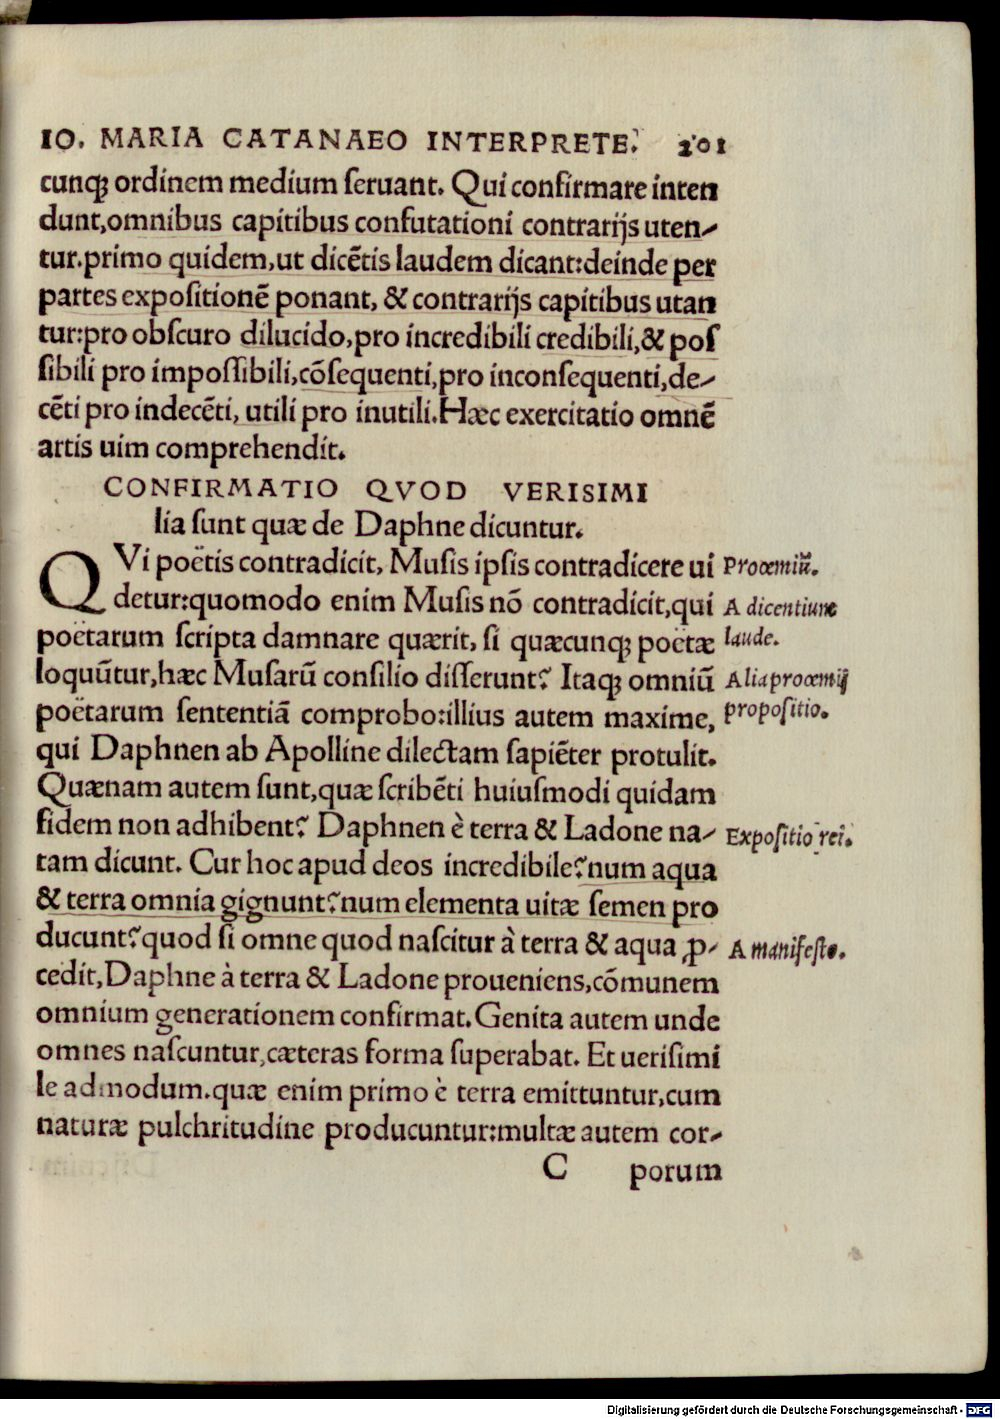 IO. MARIA CATANAEO INTERPRETE. 201
cunq; ordinem medium seruant. Qui confirmare inten
dunt,omnibus capitibus confutationi contrarijs uten-
tur.primo quidem,ut dicẽtis laudem dicant:deinde per
partes expositionẽ ponant, & contrarijs capitibus utan
tur:pro obscuro dilucido,pro incredibili credibili,& pos
sibili pro impossibili,cõsequenti,pro inconsequenti,de-
cẽti pro indecẽti, utili pro inutili.Hæc exercitatio omnẽ
artis uim comprehendit.
CONFIRMATIO QVOD VERISIMI
lia sunt quæ de Daphne dicuntur.
QVi poëtis contradicit, Musis ipsis contradicere ui Proœmiũ.
detur:quomodo enim Musis nõ contradicit,qui A dicentium
poëtarum scripta damnare quærit, si quæcunq; poëtæ laude.
loquũtur,hæc Musarũ consilio disserunt? Itaq; omniũ Alia proœmij
poëtarum sententiã comprobo:illius autem maxime, propositio.
qui Daphnen ab Apolline dilectam sapiẽter protulit.
Quænam autem sunt,quæ scribẽti huiusmodi quidam
fidem non adhibent? Daphnen è terra & Ladone na- Expositio rei.
tam dicunt. Cur hoc apud deos incredibile?num aqua
& terra omnia gignunt?num elementa uitæ semen pro
ducunt?quod si omne quod nascitur à terra & aqua ꝓ- A manifesto.
cedit,Daphne à terra & Ladone proueniens,cõmunem
omnium generationem confirmat.Genita autem unde
omnes nascuntur,cæteras forma superabat. Et uerisimi
le admodum.quæ enim primo è terra emittuntur,cum
naturæ pulchritudine producuntur:multæ autem cor-
C porum
Digitalisierung gefördert durch die Deutsche Forschungsgemeinschaft - DFG